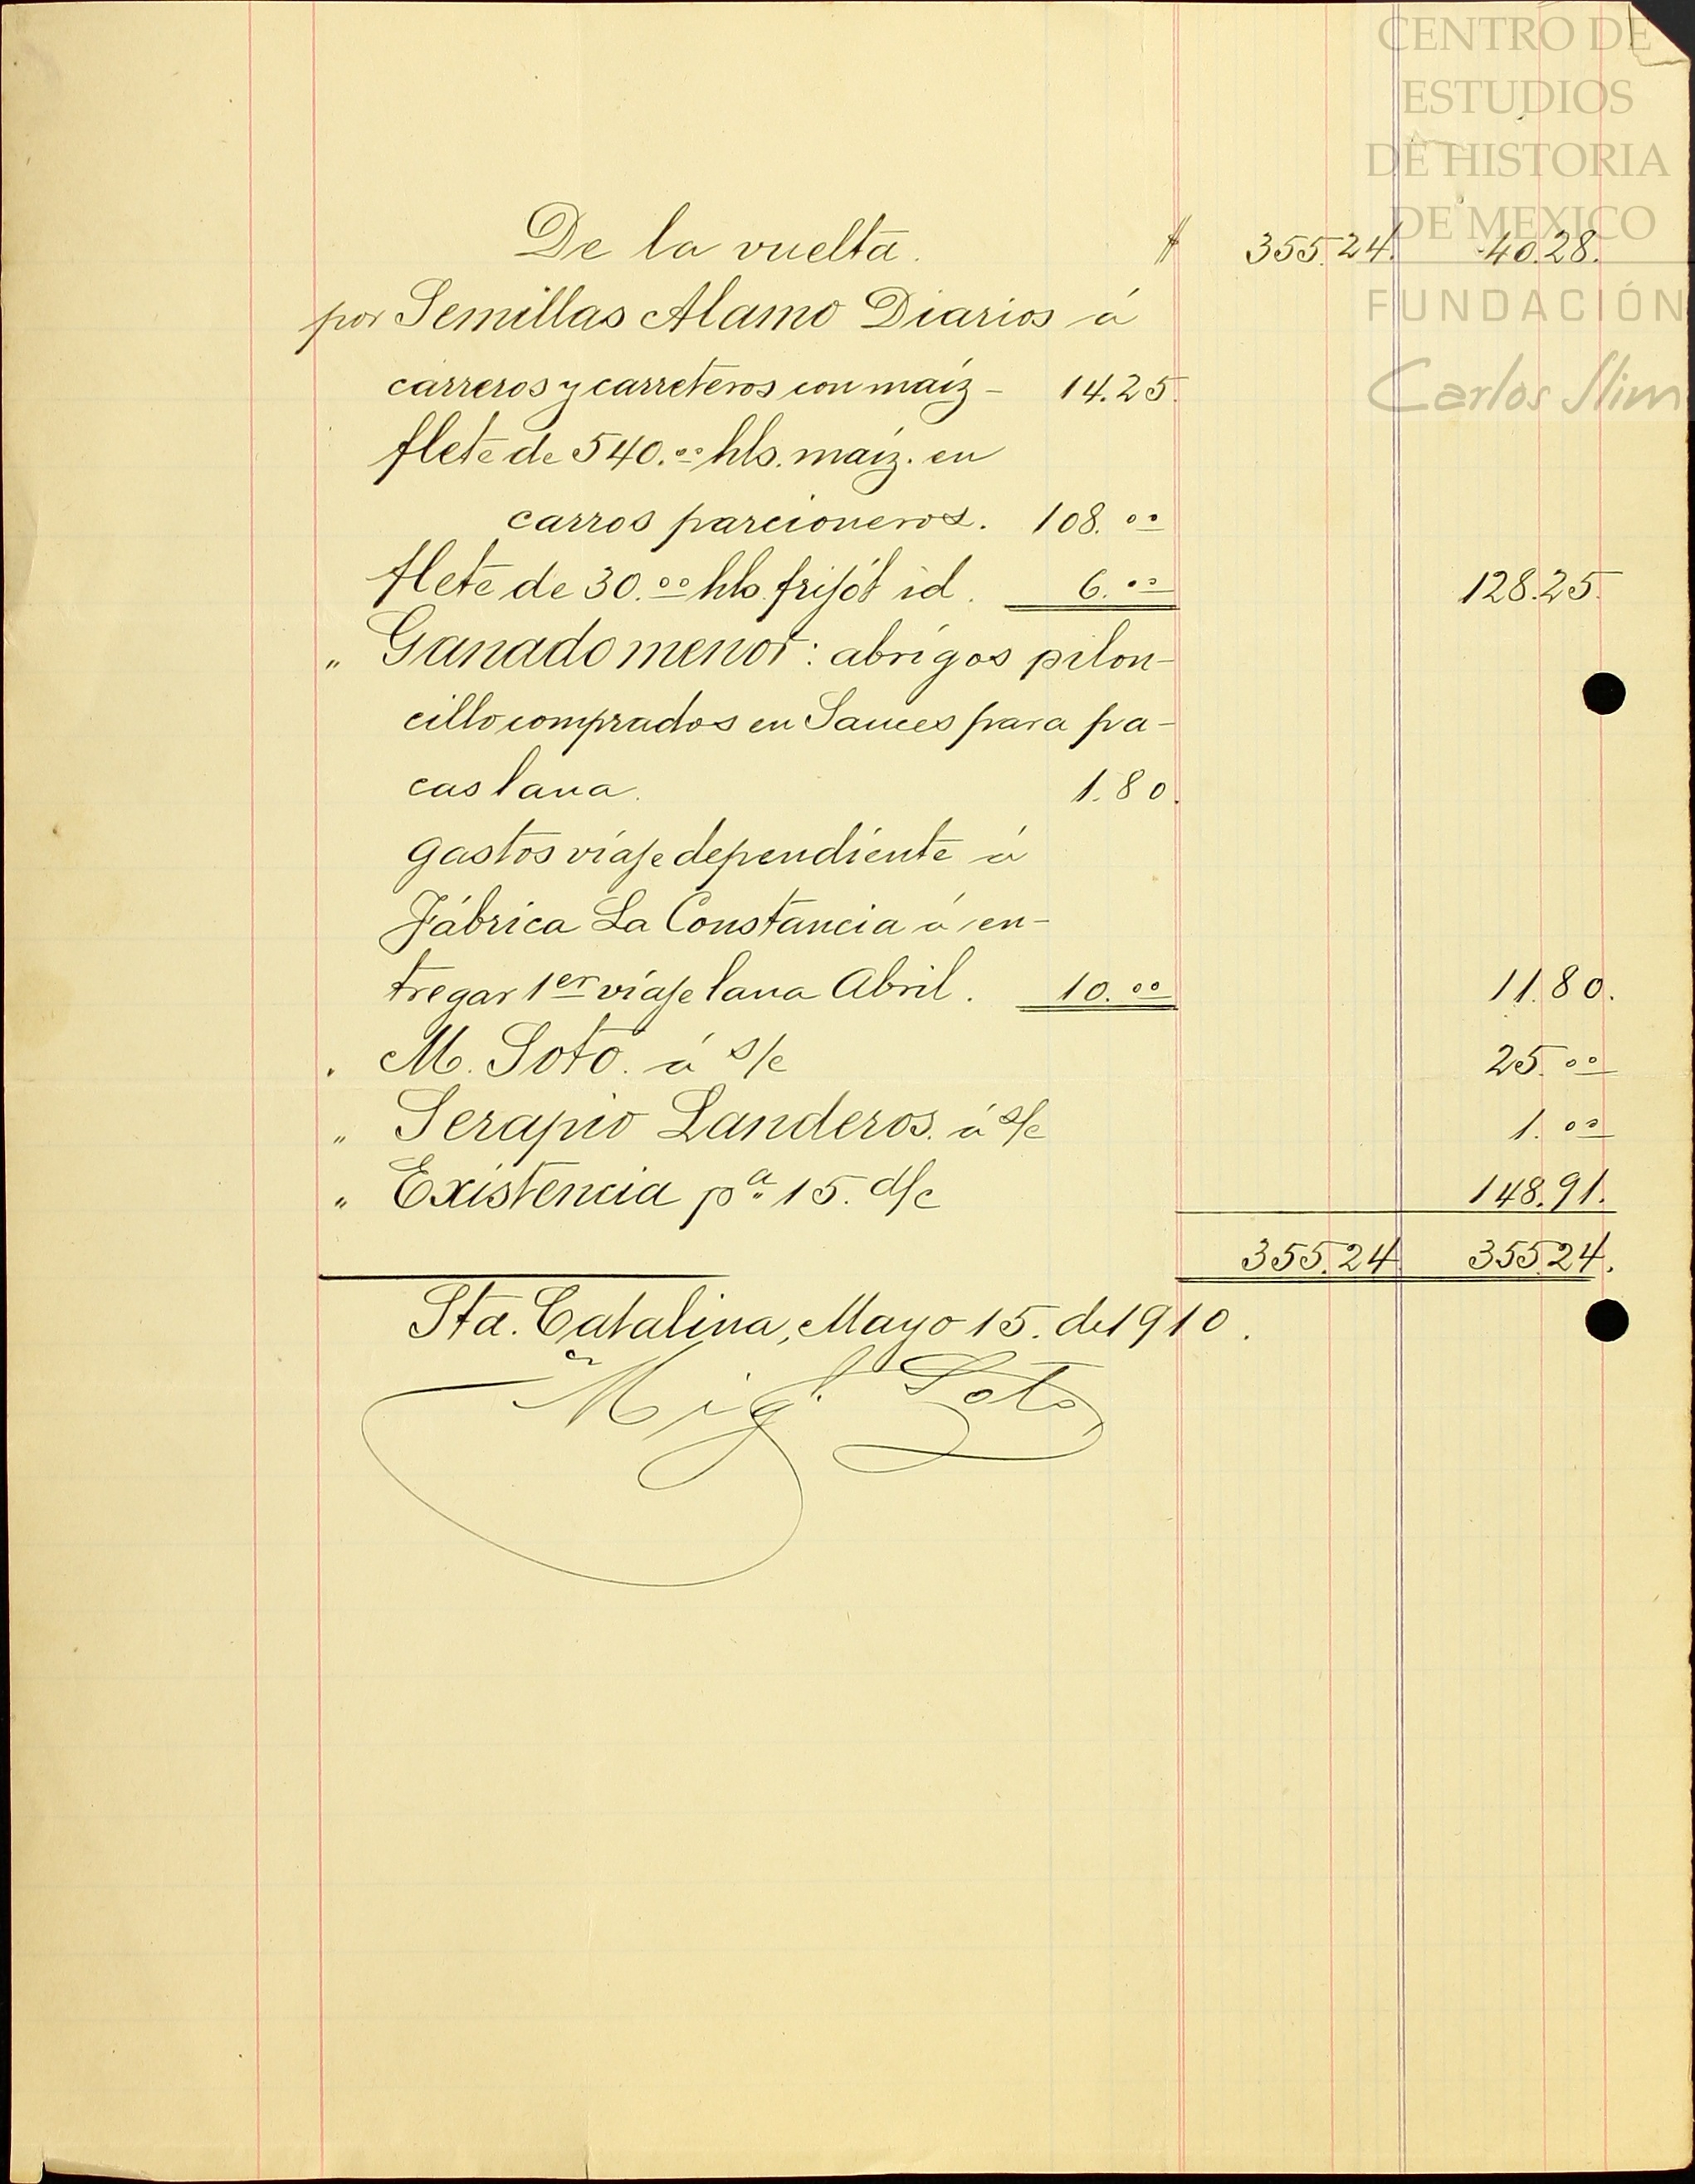 CENTRO DE
ESTUDIOS
DE HISTORIA
DE MEXICO
FUNDACIÓN
Carlos Slim
De la vuelta. $ 355.24. 40.28.
por Semillas Alamo Diarios á
carreros y carreteros con maíz - 14.25.
flete de 540.00 hls. maíz. en
carros parcioneros. 108.00
flete de 30.00 hls frijól id. 6.00 128.25.
" Ganado menor: abrigos pilon-
cillo comprados en Sauces para pa-
cas lana. 1.80.
gastos viaje dependiente á
Fábrica La Constancia á en-
tregar 1er viaje lana Abril. 10.00 11.80.
" M. Soto. á s/c 25.00
" Serapio Landeros. á s/c 1.00
" Existencia pa. 15. d/c 148.91.
355.24 355.24.
Sta. Catalina, Mayo 15. de 1910.
Migl. Soto